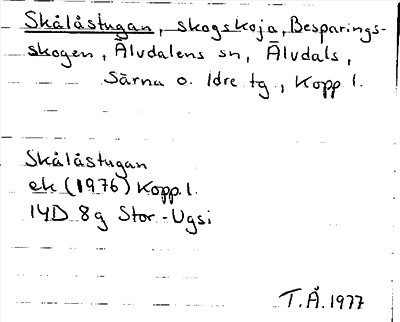 Skålåstugan, skogskoja, Besparings-
skogen, Älvdalens sn, Älvdals,
Särna o. Idre tg., Kopp. l.
Skålåstugan
ek (1976) Kopp. l.
14D 8g Stor-Ugsi
T.Å. 1977